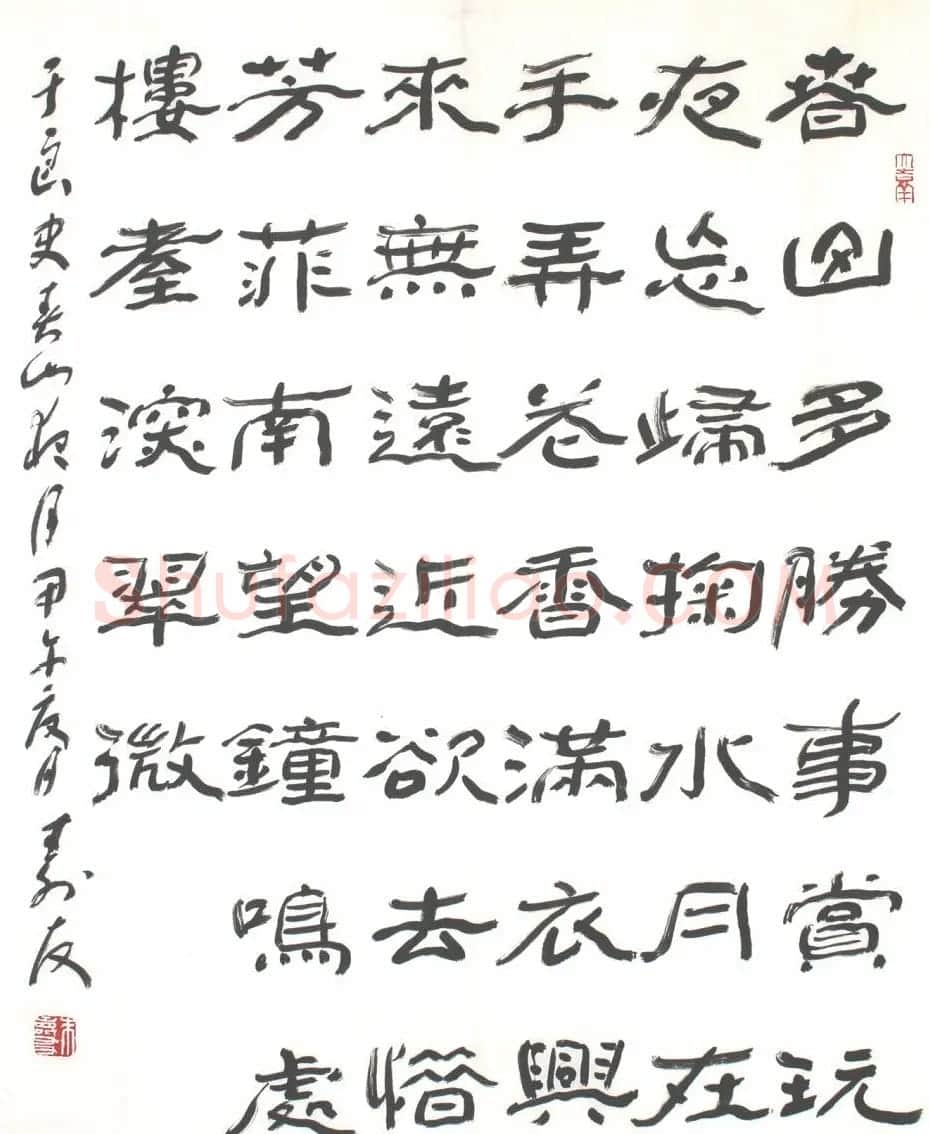 春山多勝事賞玩
夜忘歸掬水月在
手弄花香滿衣興
來無遠近欲去惜
芳菲南望鐘鳴處
樓臺深翠微
于良史春山夜月甲午夏月壽友
朱壽友
Shufaziliao.com